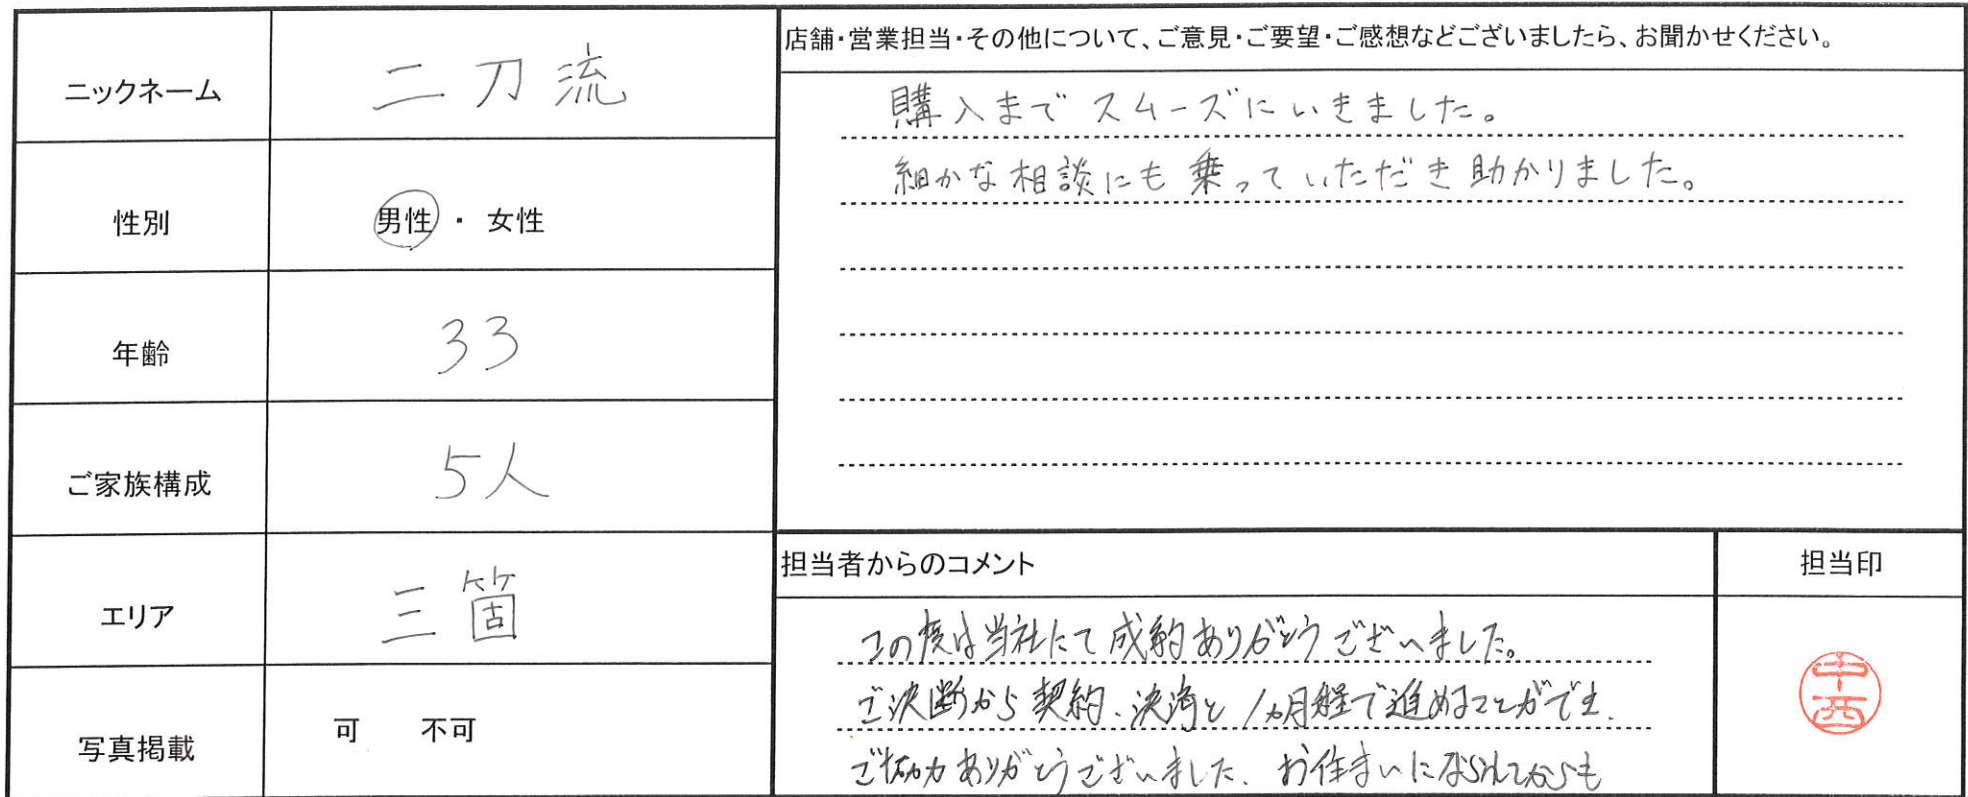 ニックネーム
二刀流
性別
男性 ・ 女性
年齢
33
ご家族構成
5人
エリア
三箇
写真掲載
可 不可
店舗・営業担当・その他について、ご意見・ご要望・ご感想などございましたら、お聞かせください。
購入まで スムーズにいきました。
細かな相談にも乗っていただき助かりました。
担当者からのコメント
この度は当社にて成約ありがとうございました。
ご決断から契約、決済と1ヵ月程で進めることができ、
ご協力ありがとうございました、お住まいになられてからも
担当印
中西